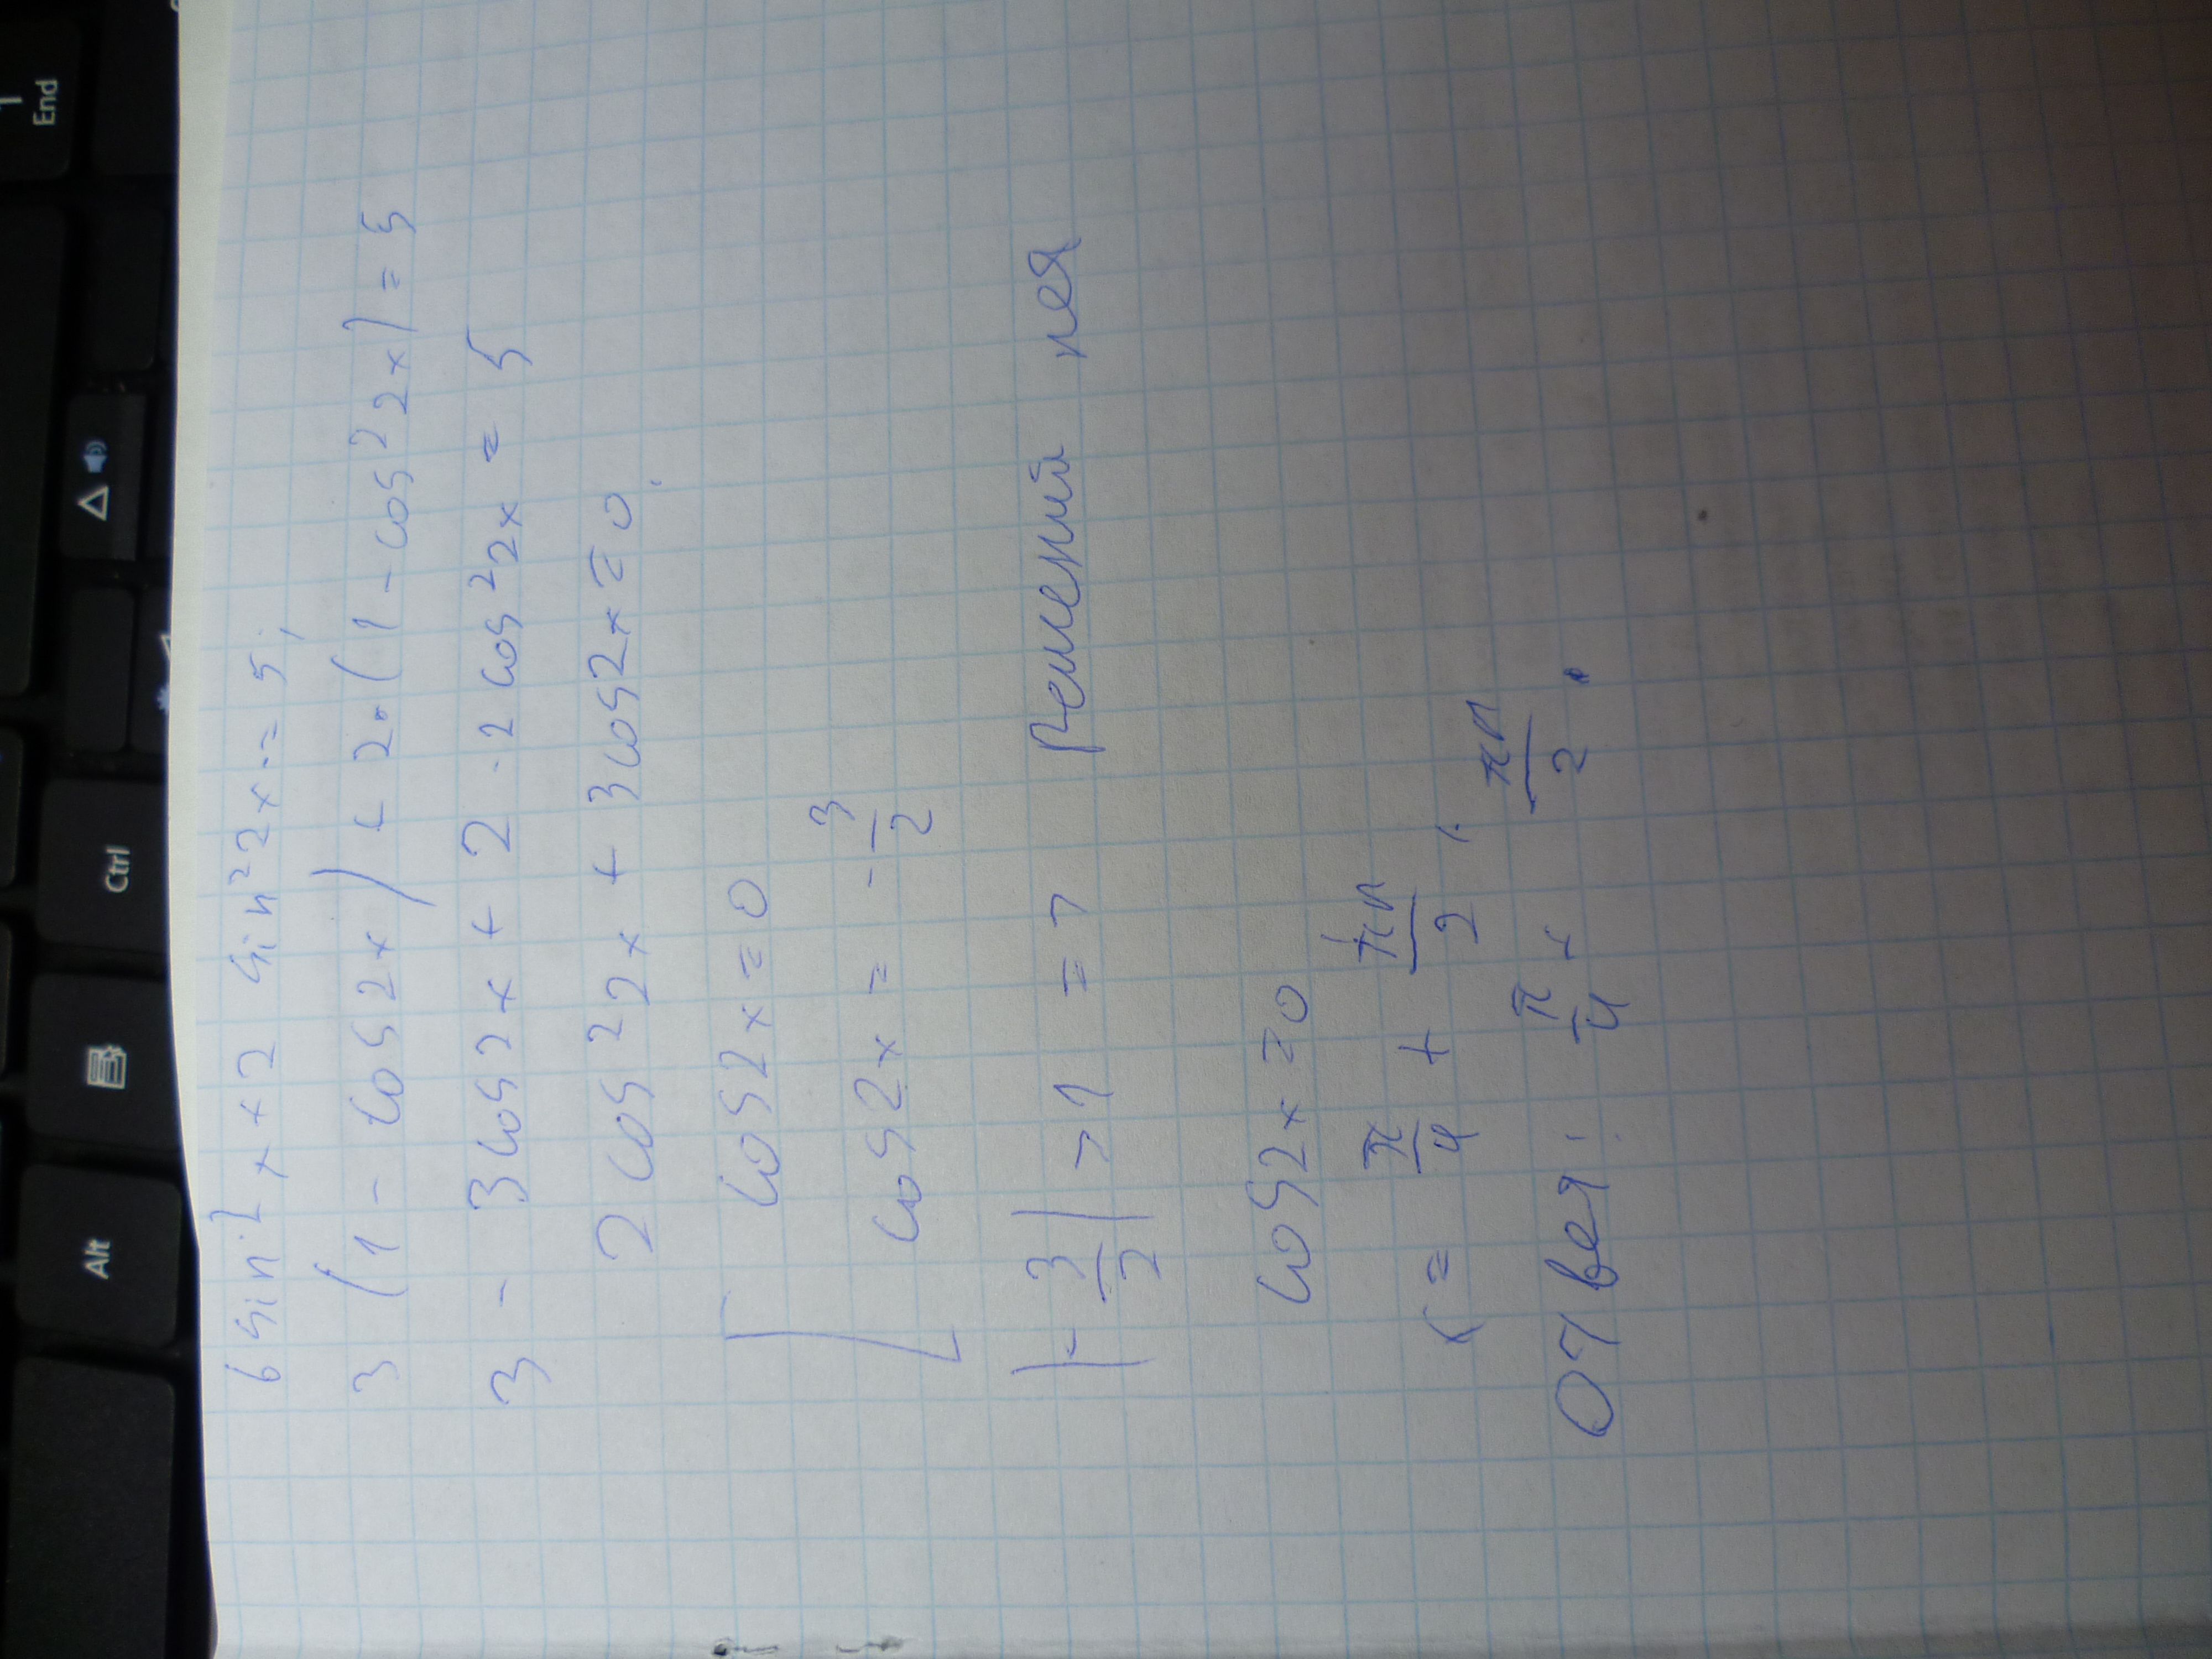 6 sin² x + 2 sin² 2x = 5;
3 (1 - cos 2x) + 2·(1 - cos² 2x) = 5
3 - 3 cos 2x + 2 - 2 cos² 2x = 5
2 cos² 2x + 3 cos 2x = 0.
cos 2x = 0
cos 2x = - 3/2
|- 3/2| > 1 => решений нет
cos 2x = 0
x = π/4 + πn/2,
Ответ: π/4 + πn/2.
Alt
Ctrl
End